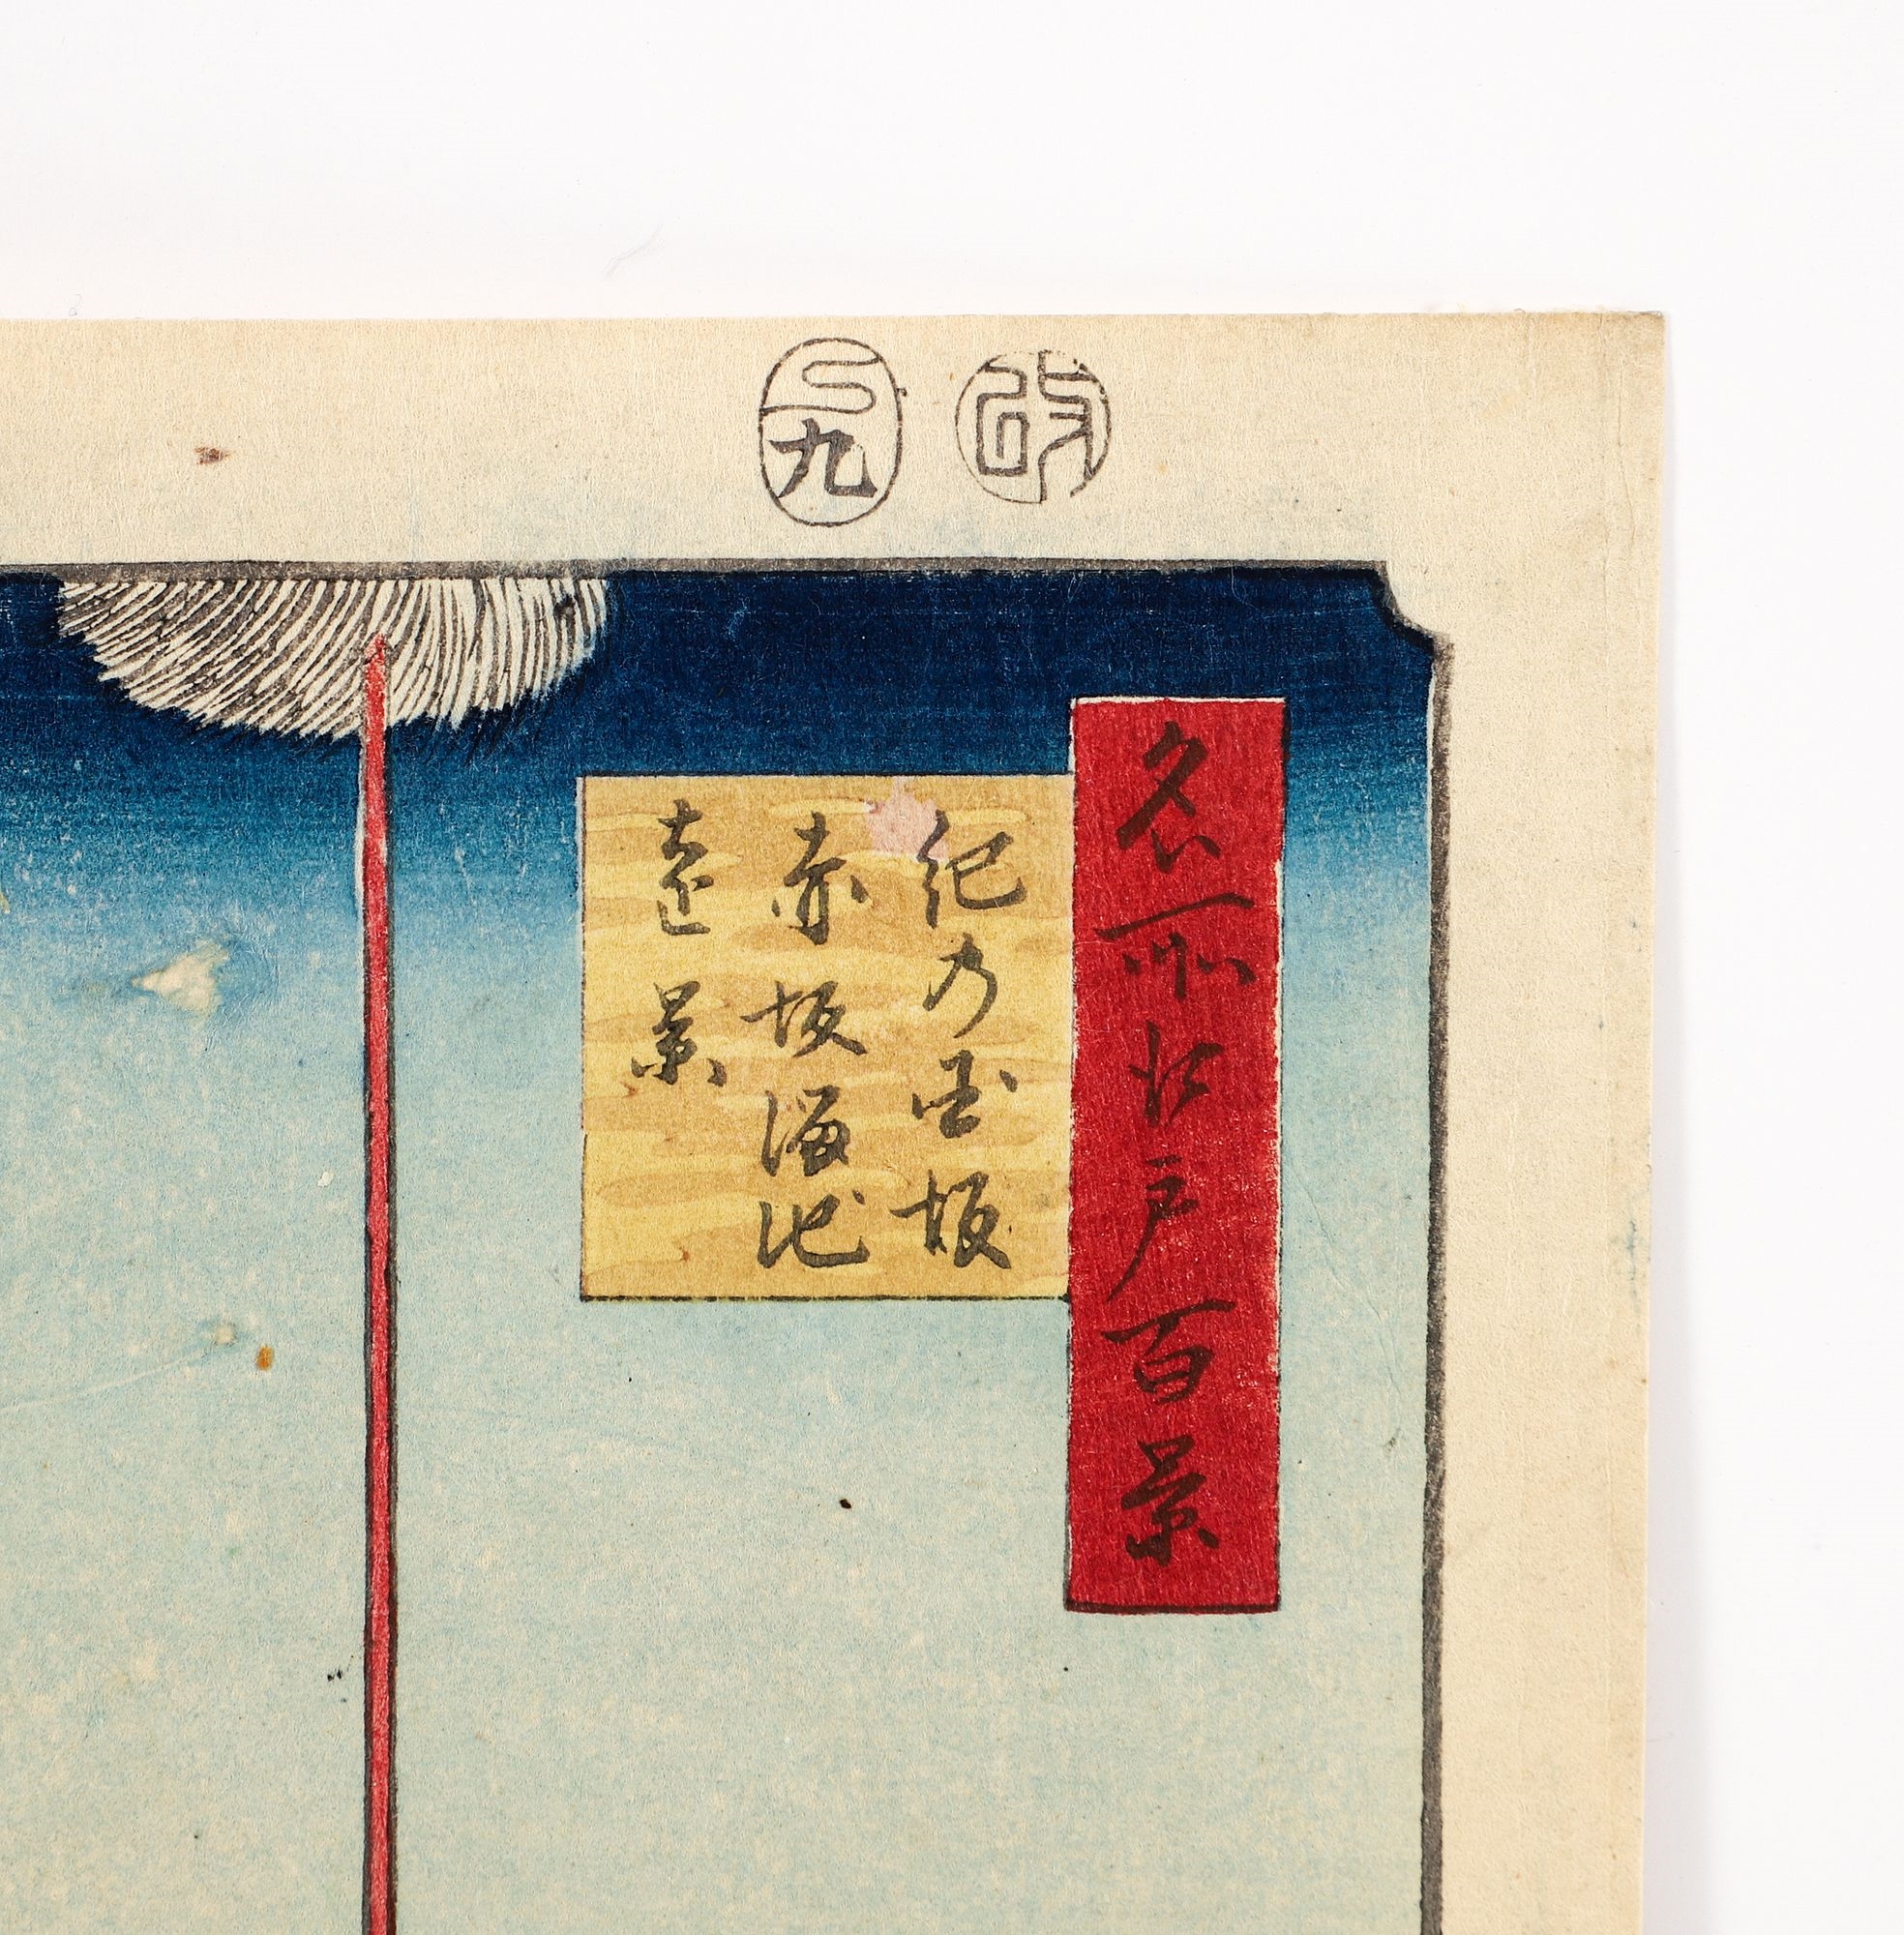 改
巳九
名所江戸百景
紀乃国坂
赤坂溜池
遠景